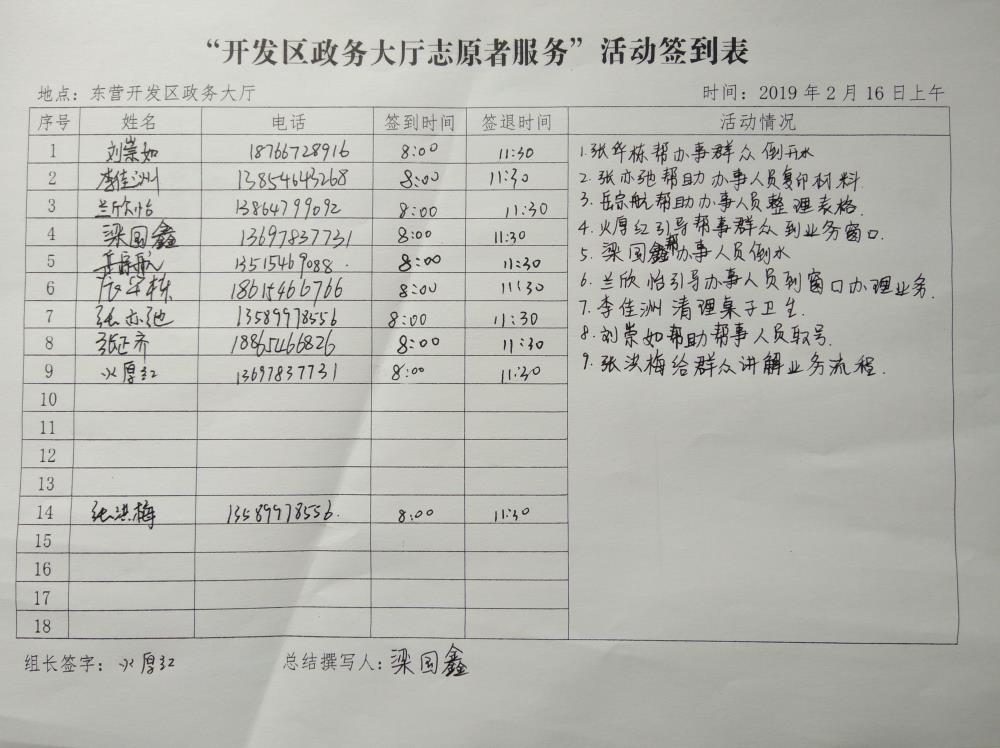 “开发区政务大厅志原者服务”活动签到表
地点：东营开发区政务大厅 时间：2019年2月16日上午
序号 姓名 电话 签到时间 签退时间 活动情况
1 刘崇如 18766728916 8:00 11:30 1.张华栋帮办事群众倒开水
2 李佳洲 13854643268 8:00 11:30 2.张亦弛帮助办事人员复印材料.
3 兰欣怡 13864799092 8:00 11:30 3.岳宗航帮助办事人员整理表格.
4 梁国鑫 13697837731 8:00 11:30 4.火厚红引导帮事群众到业务窗口.
5 岳宗航 13515469088. 8:00 11:30 5.梁国鑫帮办事人员倒水
6 张华栋 18615466766 8:00 11:30 6.兰欣怡引导办事人员到窗口办理业务.
7 张亦弛 13589978556 8:00 11:30 7.李佳洲清理桌子卫生.
8 张正齐 18865466826 8:00 11:30 8.刘崇如帮助帮事人员取号.
9 火厚红 13697837731 8:00 11:30 9.张洪梅给群众讲解业务流程.
10
11
12
13
14 张洪梅 13589978556. 8:00 11:30
15
16
17
18
组长签字：火厚红 总结撰写人：梁国鑫